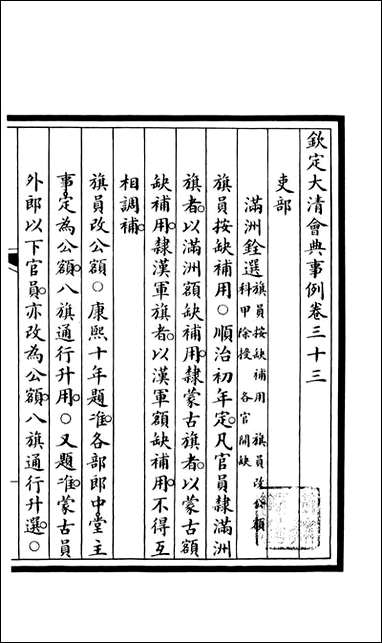 欽定大清會典事例卷三十三
吏部
滿洲銓選旗員按缺補用 旗員改公額
科甲除授 各官開缺
旗員按缺補用○順治初年定凡官員隸滿洲
旗者以滿洲額缺補用隸蒙古旗者以蒙古額
缺補用隸漢軍旗者以漢軍額缺補用不得互
相調補
旗員改公額○康熙十年題准各部郎中堂主
事定為公額八旗通行升用○又題准蒙古員
外郎以下官員亦改為公額八旗通行升選○